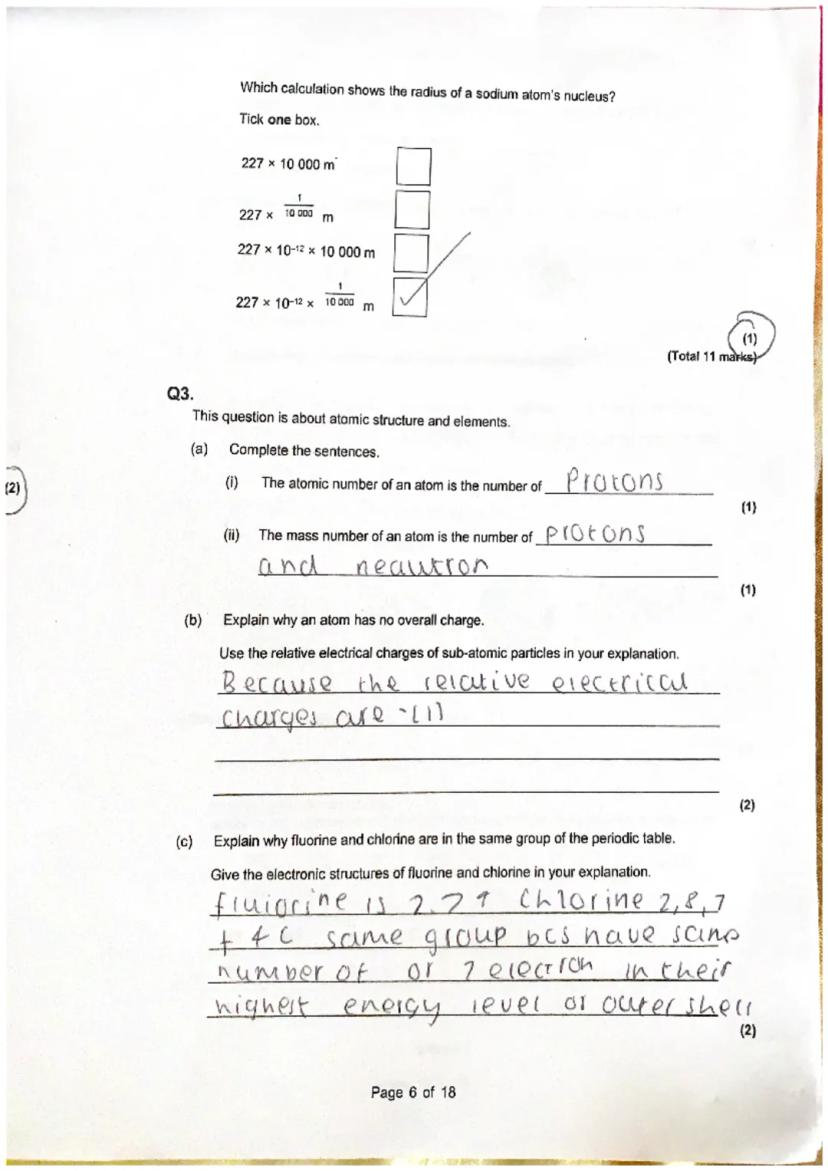 Which calculation shows the radius of a sodium atom's nucleus?
Tick one box.
227 × 10 000 m
227 × 1/10 000 m
227 × 10⁻¹² × 10 000 m
227 × 10⁻¹² × 1/10 000 m
(1)
(Total 11 marks)
Q3.
This question is about atomic structure and elements.
(a) Complete the sentences.
(2)
(i) The atomic number of an atom is the number of Protons
(1)
(ii) The mass number of an atom is the number of protons
and neautron
(1)
(b) Explain why an atom has no overall charge.
Use the relative electrical charges of sub-atomic particles in your explanation.
Because the relative electrical
charges are
(2)
(c) Explain why fluorine and chlorine are in the same group of the periodic table.
Give the electronic structures of fluorine and chlorine in your explanation.
is Chlorine 2,8,7
same group bcs have
number of or 7 electron in their
highest energy level or outer shell
(2)
Page 6 of 18